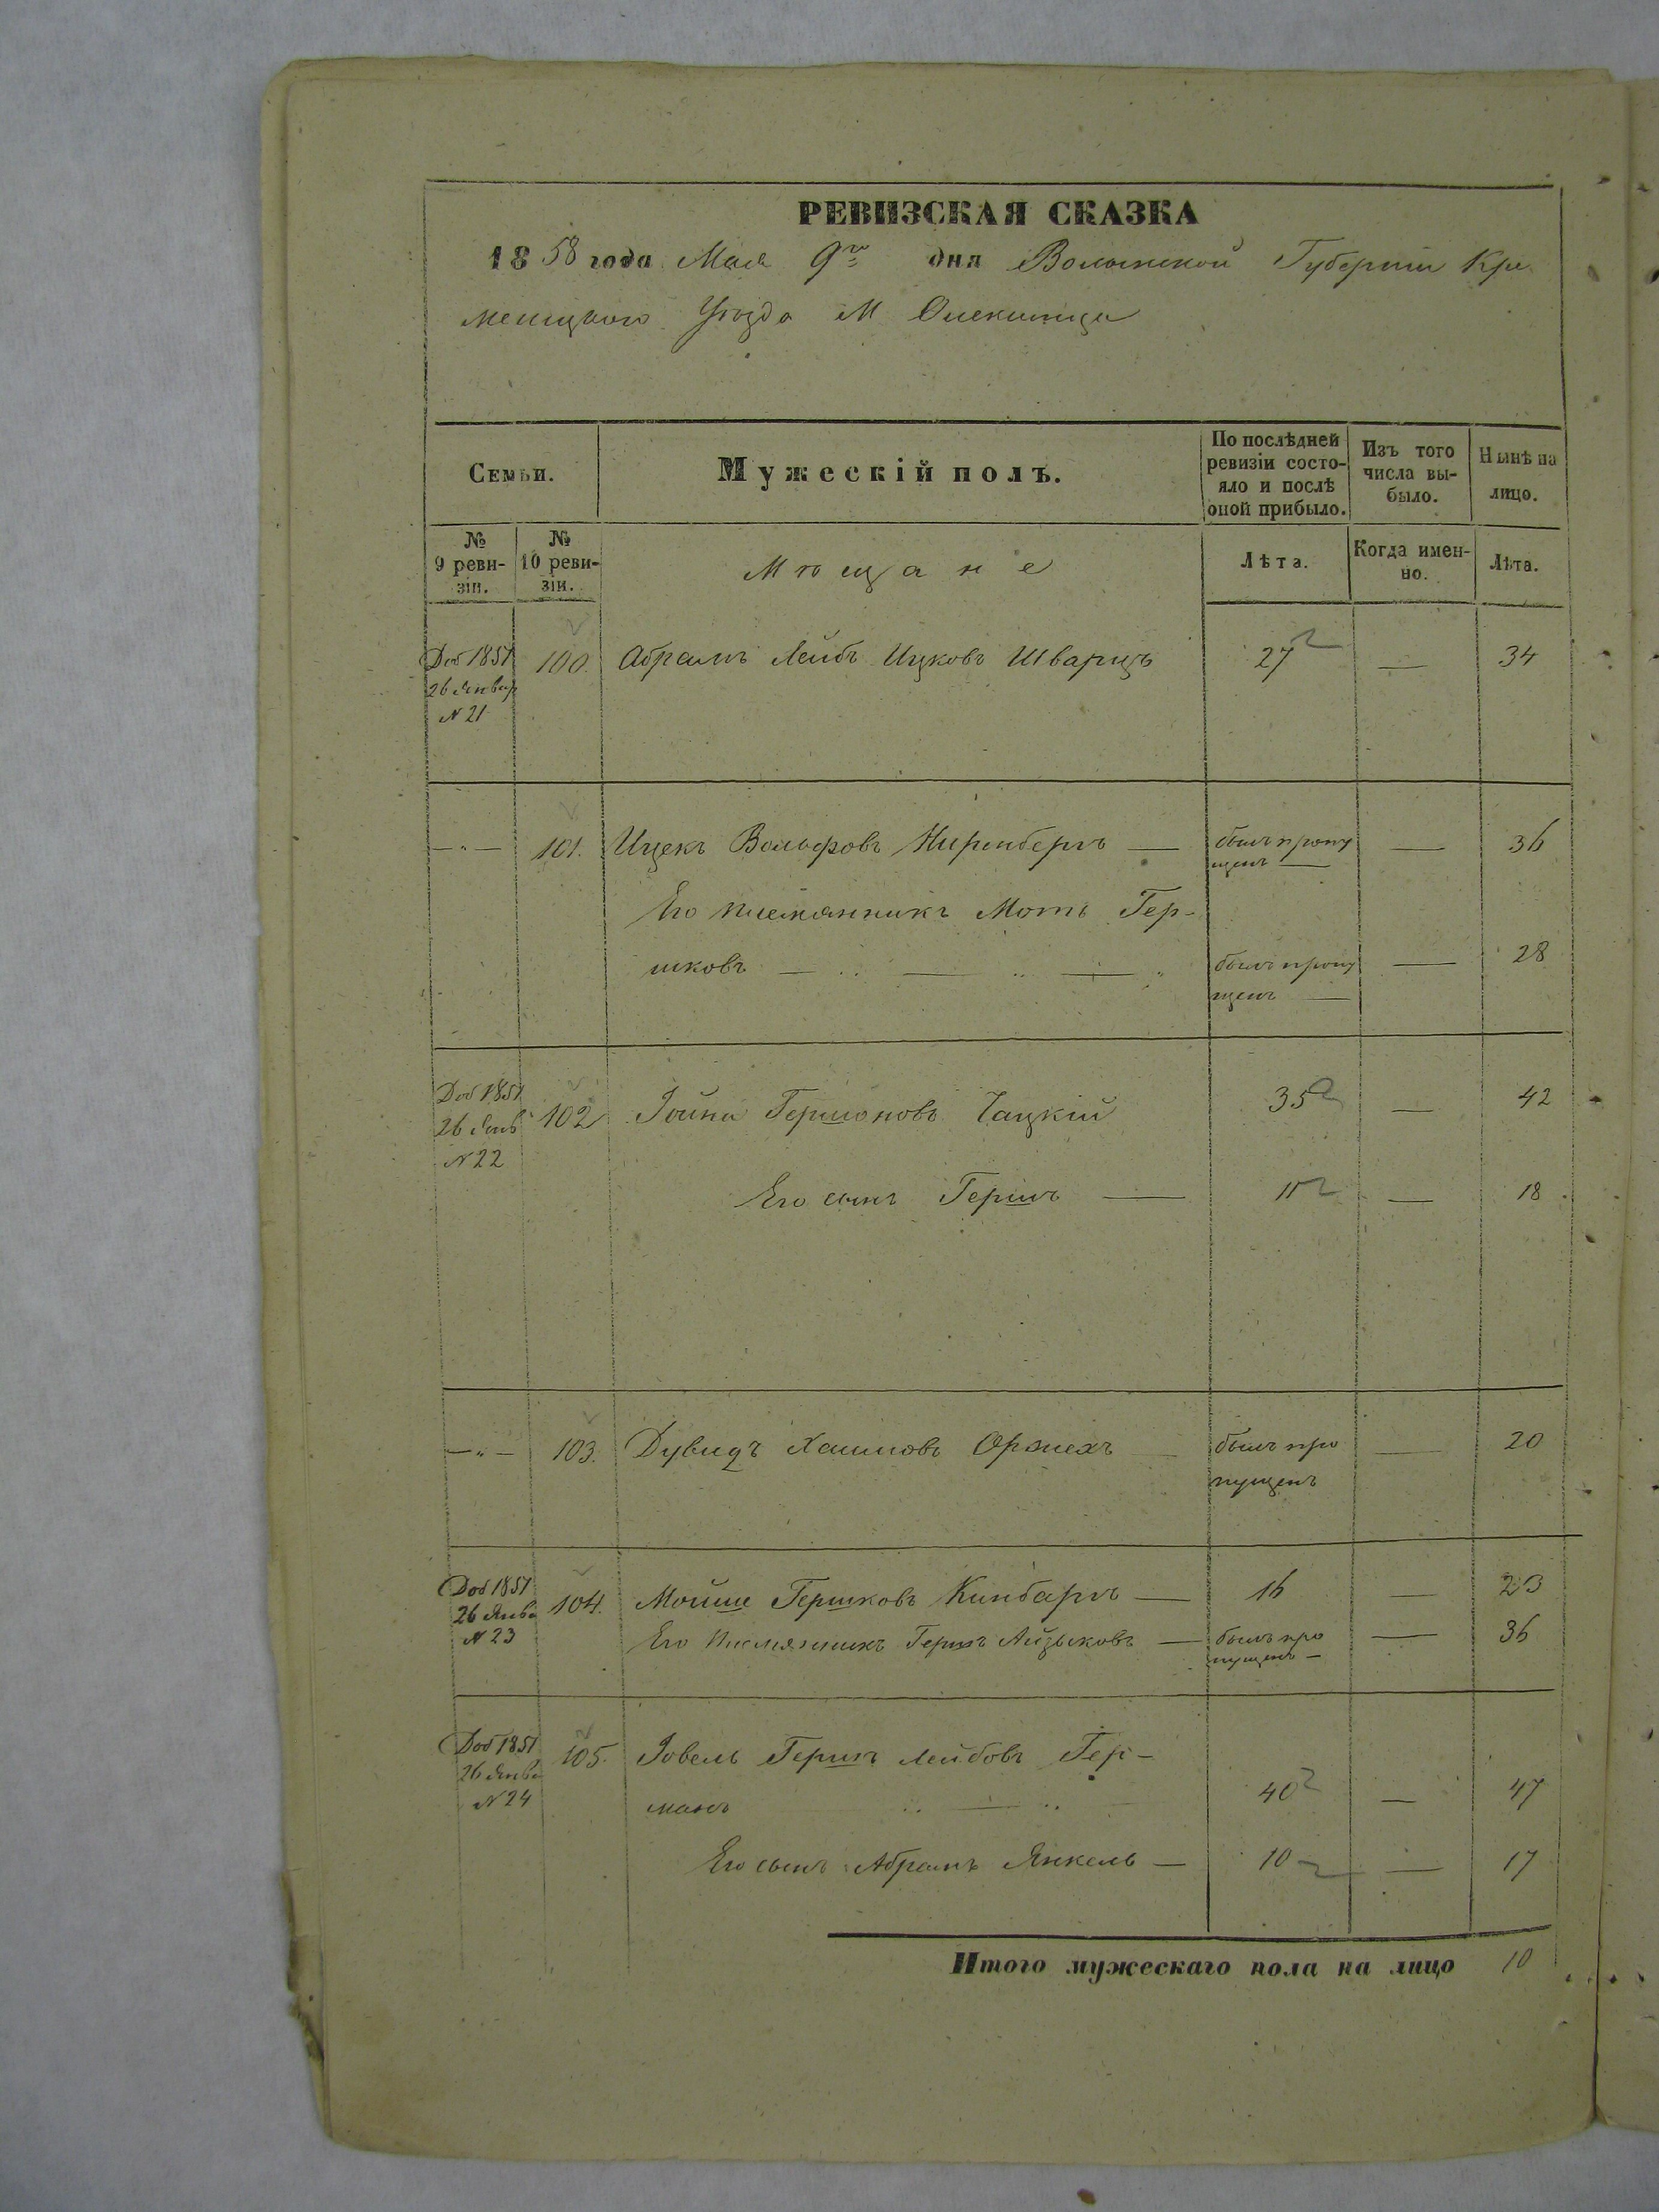 РЕВИЗСКАЯ СКАЗКА
1858 года Мая 9го дня Волынской Губернiи Кре
менецкого Уѣзда М Олексинца
Семьи.
Мужескiй полъ.
По послѣдней ревизiи состо-
яло и послѣ
оной прибыло.
Изъ того
числа вы-
было.
Нынѣ на
лицо.
№
9 реви-
зiи.
№
10 реви-
зiи.
Мѣщане
Лѣта.
Когда имен-
но.
Лѣта.
Доб 1851
26 Январ
N 21
100. Абрамъ Лейбъ Ицковъ Шварцъ 27 — 34
—"— 101. Ицекъ Вольфовъ Ниренбергъ — былъ пропу
щенъ — — 36
Его племянникъ Мотъ Гер-
шковъ — былъ пропу
щенъ — — 28
Доб 1851
26 Янв
N 22
102 Iойна Гершоновъ Чацкiй 35 — 42
Его сынъ Гершъ — 11 — 18
—"— 103. Дувидъ Хаимовъ Оржехъ былъ про
пущенъ — 20
Доб 1851
26 Янва
N 23
104. Мойше Гершковъ Кинбаргъ — 16 — 23
Его Племянникъ Гершъ Айзыковъ — былъ про
пущенъ — — 36
Доб 1851
26 Янва
N 24
105. Iовель Гершъ Лейбовъ Гер-
манъ 40 — 47
Его сынъ Абрамъ Янкель — 10 — 17
Итого мужескаго пола на лицо 10